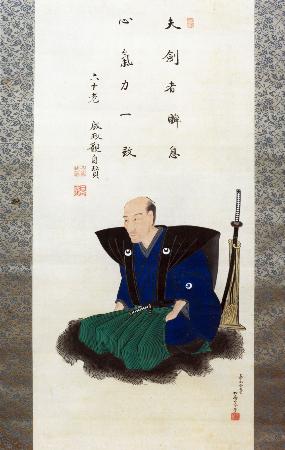 夫劍者瞬息
心氣力一致
六十老
成政自賛